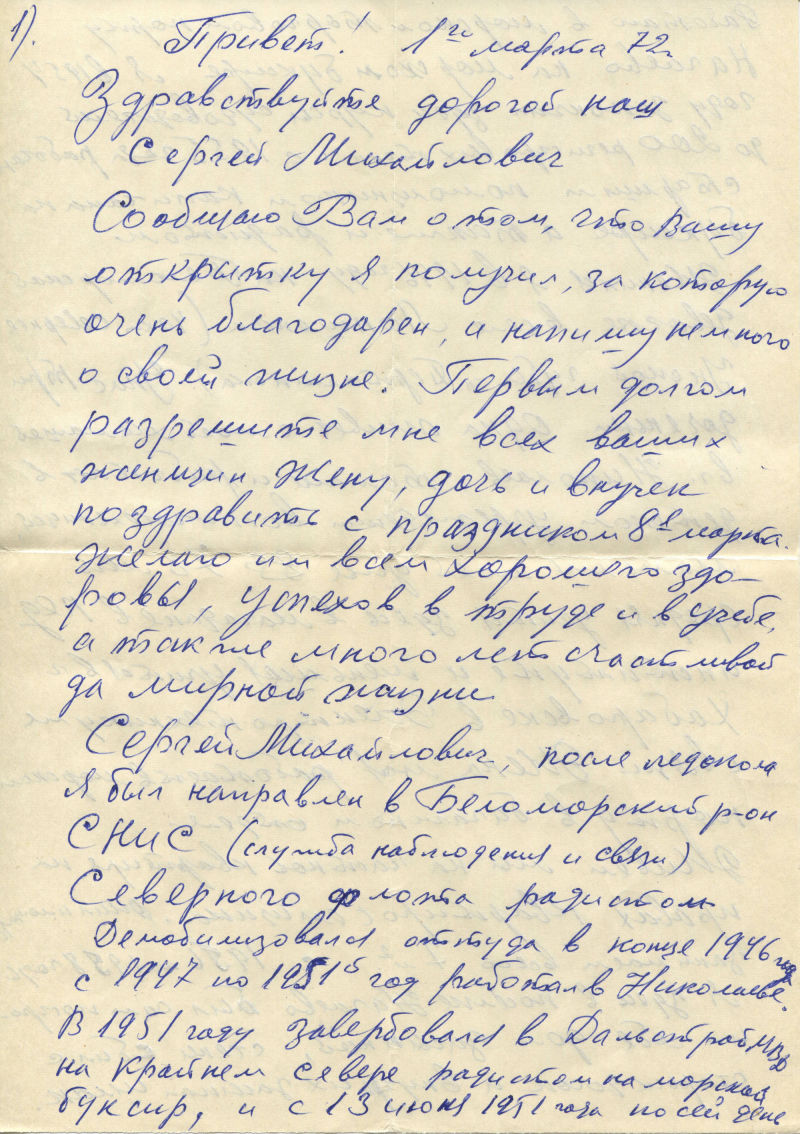 1).
Привет! 1го марта 72г.
Здравствуйте дорогой наш
Сергей Михайлович
Сообщаю Вам о том, что Вашу
открытку я получил, за которую
очень благодарен, и напишу немного
о своей жизне. Первым долгом
разрешите мне всех ваших
женщин Жену, дочь и внучек
поздравить с праздником 8е марта.
Желаю им всем хорошего здо-
ровья, успехов в труде и в учебе,
а так же много лет счастливой
да мирной жизни
Сергей Михайлович после ледокола
я был направлен в Беломорский р-он
СНиС (служба наблюдения и связи)
Северного флота радистом
Демобилизовался оттуда в конце 1946 года
с 1947 по 1951й год работал в Николаеве.
В 1951 году завербовался в Дальстрой МВД
на крайнем севере радистом на морской
буксир, и с 13 июня 1951 года по сей день